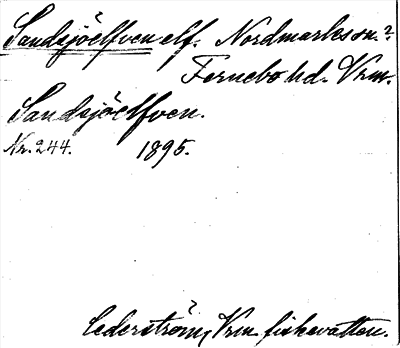 Sandsjöelfven elf. Nordmarks sn.?
Fernebo hd. Vrm.
Sandsjöelfven.
Nr. 244. 1895.
Cederström, Vrm fiskevatten.